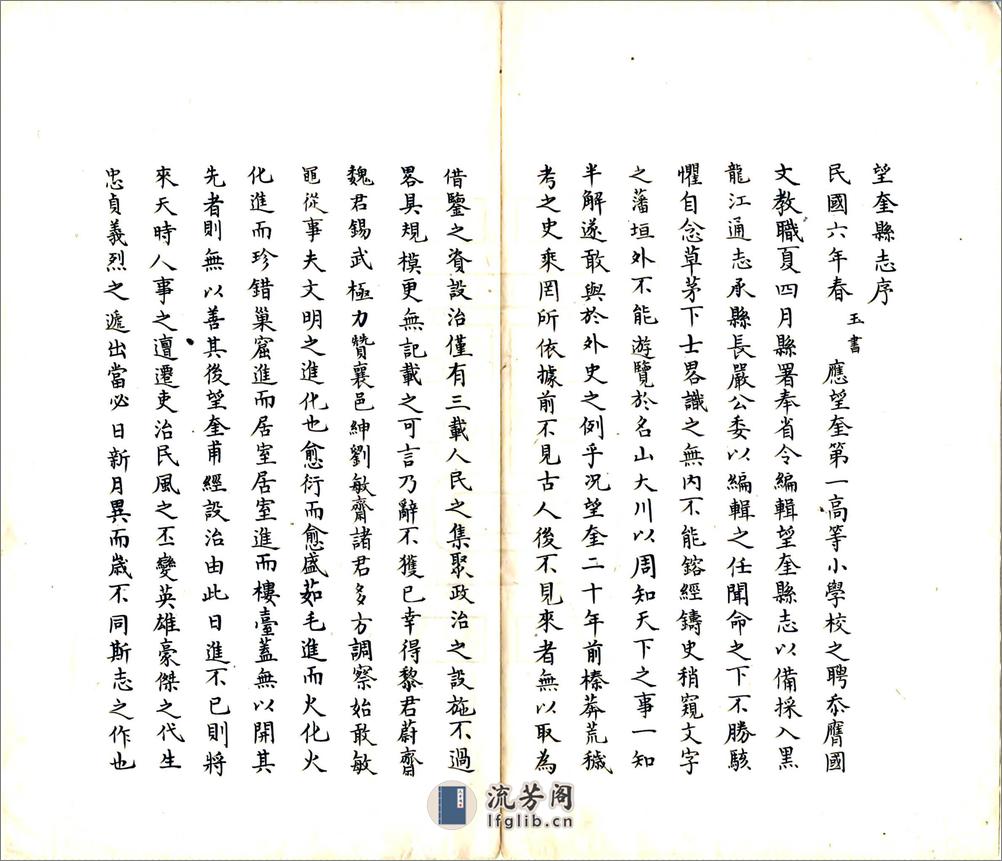 望奎縣志序
民國六年春玉書應望奎第一高等小學校之聘忝膺國
文教職夏四月縣署奉省令編輯望奎縣志以備採入黑
龍江通志承縣長嚴公委以編輯之任聞命之下不勝駭
懼自念草茅下士畧識之無內不能鎔經鑄史稍窺文字
之藩垣外不能遊覽於名山大川以周知天下之事一知
半解遂敢與於外史之例乎況望奎二十年前榛莽荒穢
考之史乘罔所依據前不見古人後不見來者無以取為
借鑒之資設治僅有三載人民之集聚政治之設施不過
畧具規模更無記載之可言乃辭不獲已幸得黎君蔚齋
魏君錫武極力贊襄邑紳劉敏齋諸君多方調察始敢敏
黽從事夫文明之進化也愈衍而愈盛茹毛進而火化火
化進而珍錯巢窟進而居室居室進而樓臺蓋無以開其
先者則無以善其後望奎甫經設治由此日進不已則將
來天時人事之邅遷吏治民風之丕變英雄豪傑之代生
忠貞義烈之遞出當必日新月異而歲不同斯志之作也
流芳阁
lfglib.cn